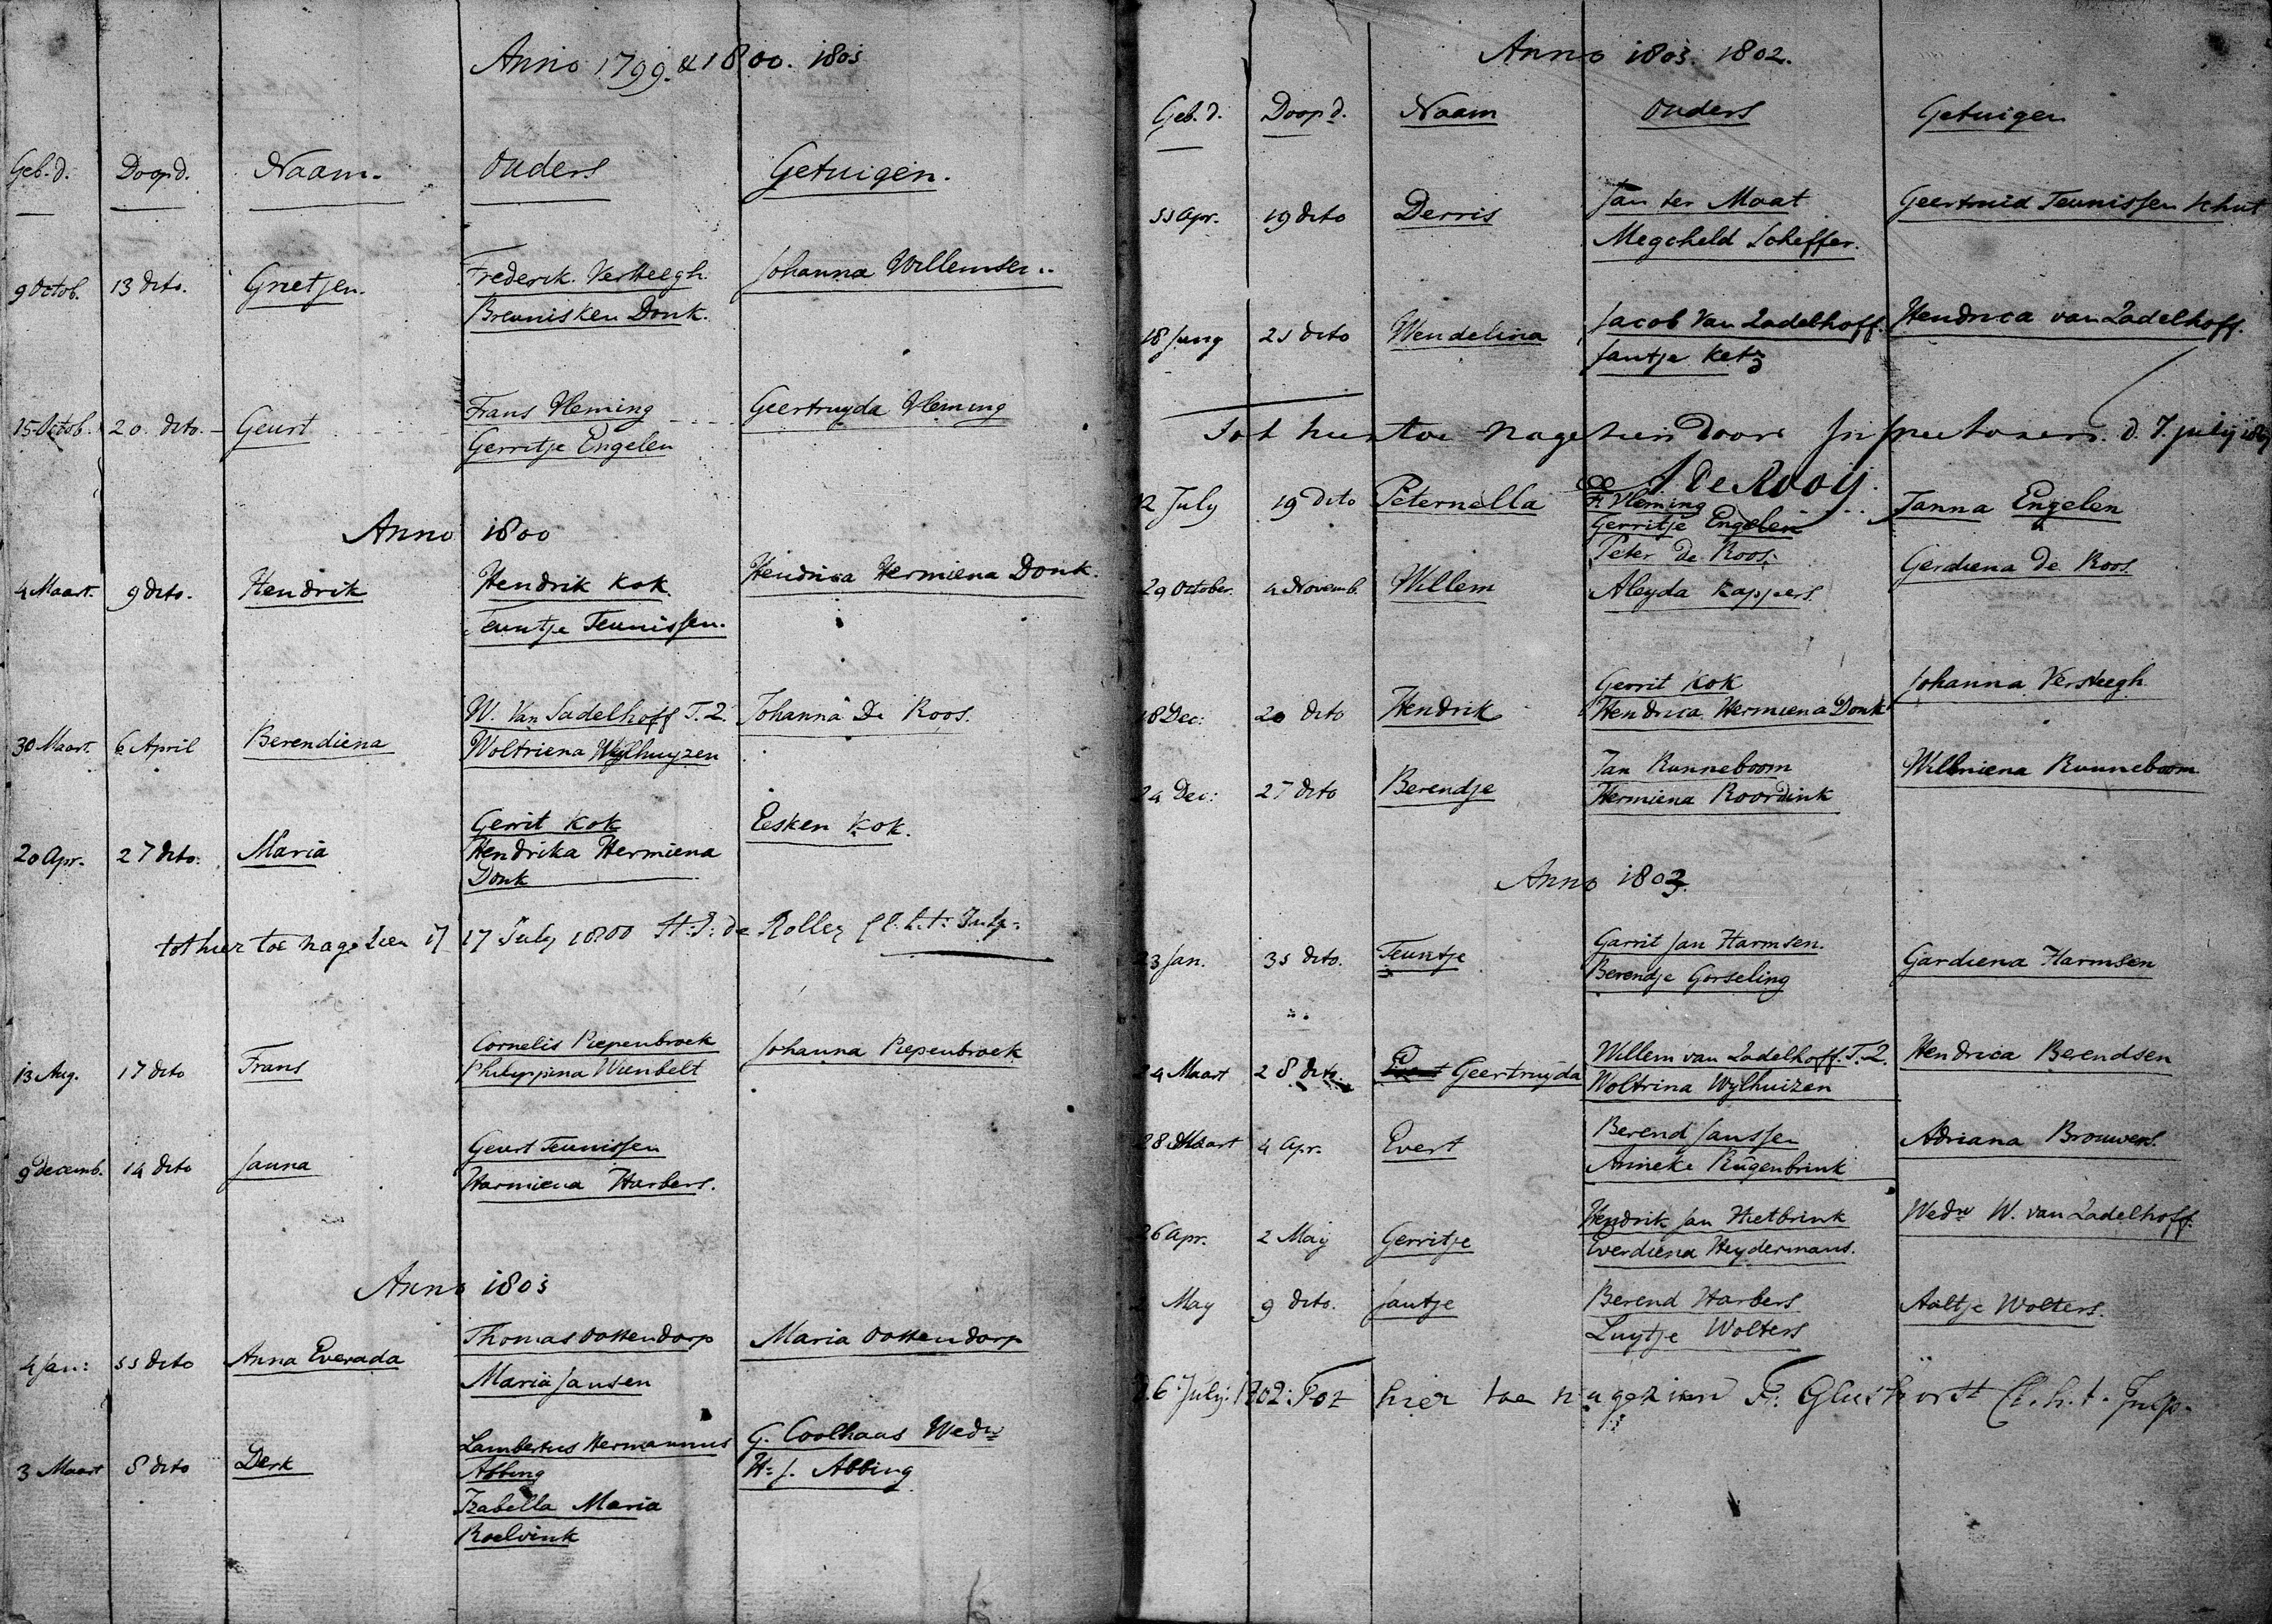 Anno 1799. & 1800. 1801
Geb. d. Doop d. Naam. Ouders Getuigen.
9 Octob. 13 dito. Grietjen. Frederik Versteegh Johanna Willemsen
Breunisken Donk.
15 Octob. 20 dito. Geurt Frans Vleming Geertruyda Vleming
Gerritje Engelen
Anno 1800
4 Maart. 9 dito. Hendrik Hendrik Kok Hendrica Hermiena Donk.
Teuntje Teunissen.
30 Maart. 6 April Berendiena W. van Sadelhoff T. Z. Johanna De Roos.
Woltriena Wylhuyzen
20 Apr. 27 dito. Maria Gerrit Kok Eesken Kok.
Hendrika Hermiena
Donk
tot hier toe nagesien 17 July 1800
13 Aug. 17 dito Frans Cornelis Piepenbroek Johanna Piepenbroek
Philippina Wienbelt
9 Decemb. 14 dito Janna Geurt Teunissen
Harmiena Harbers.
Anno 1801
4 Jan: 11 dito Anna Everada Thomas Oostendorp Maria Oostendorp
Maria Jansen
3 Maart 8 dito Derk Lambertus Hermannus G. Coolhaas Wedw
Abbing H. J. Abbing
Izabella Maria
Roelvink
Anno 1801. 1802.
Geb. d. Doop d. Naam Ouders Getuigen
11 Apr. 19 dito Derris Jan ter Maat Geertruid Teunissen Schut
Megcheld Scheffer.
18 Juny 21 dito Wendelina Jacob van Zadelhoff. Hendrica van Zadelhoff.
Jantje Ketz
Tot hier toe nagesien door Inspectoren. d. 7. july 1801
J. de Rooij.
12 July 19 dito Peternella F. Vleming Janna Engelen
Gerritje Engelen
29 October. 4 Novemb. Willem Peter de Roos. Gerdiena de Roos.
Aleyda Kappers.
18 Dec: 20 dito Hendrik Gerrit Kok Johanna Versteegh
Hendrica Hermiena Donk
24 Dec: 27 dito Berendje Jan Runneboom Willemiena Runneboom
Hermiena Roordink
Anno 1802.
23 Jan. 31 dito. Teuntje Garrit Jan Harmsen. Gardiena Harmsen
Berendje Gorseling
24 Maart 28 dito. Geertruyda Willem van Zadelhoff. T. Z. Hendrica Berendsen
Woltrina Wylhuizen
28 Maart 4 Apr. Evert Berend Janssen Adriana Brouwers.
Anneke Rugenbrink
26 Apr. 2 May Gerritje Hendrik Jan Hietbrink Wedw W. van Zadelhoff.
Everdiena Heydermans.
May 9 dito. Jantje Berend Harbers Aaltje Wolters.
Luytje Wolters
26 July: 1802: Tot hier toe nagezien